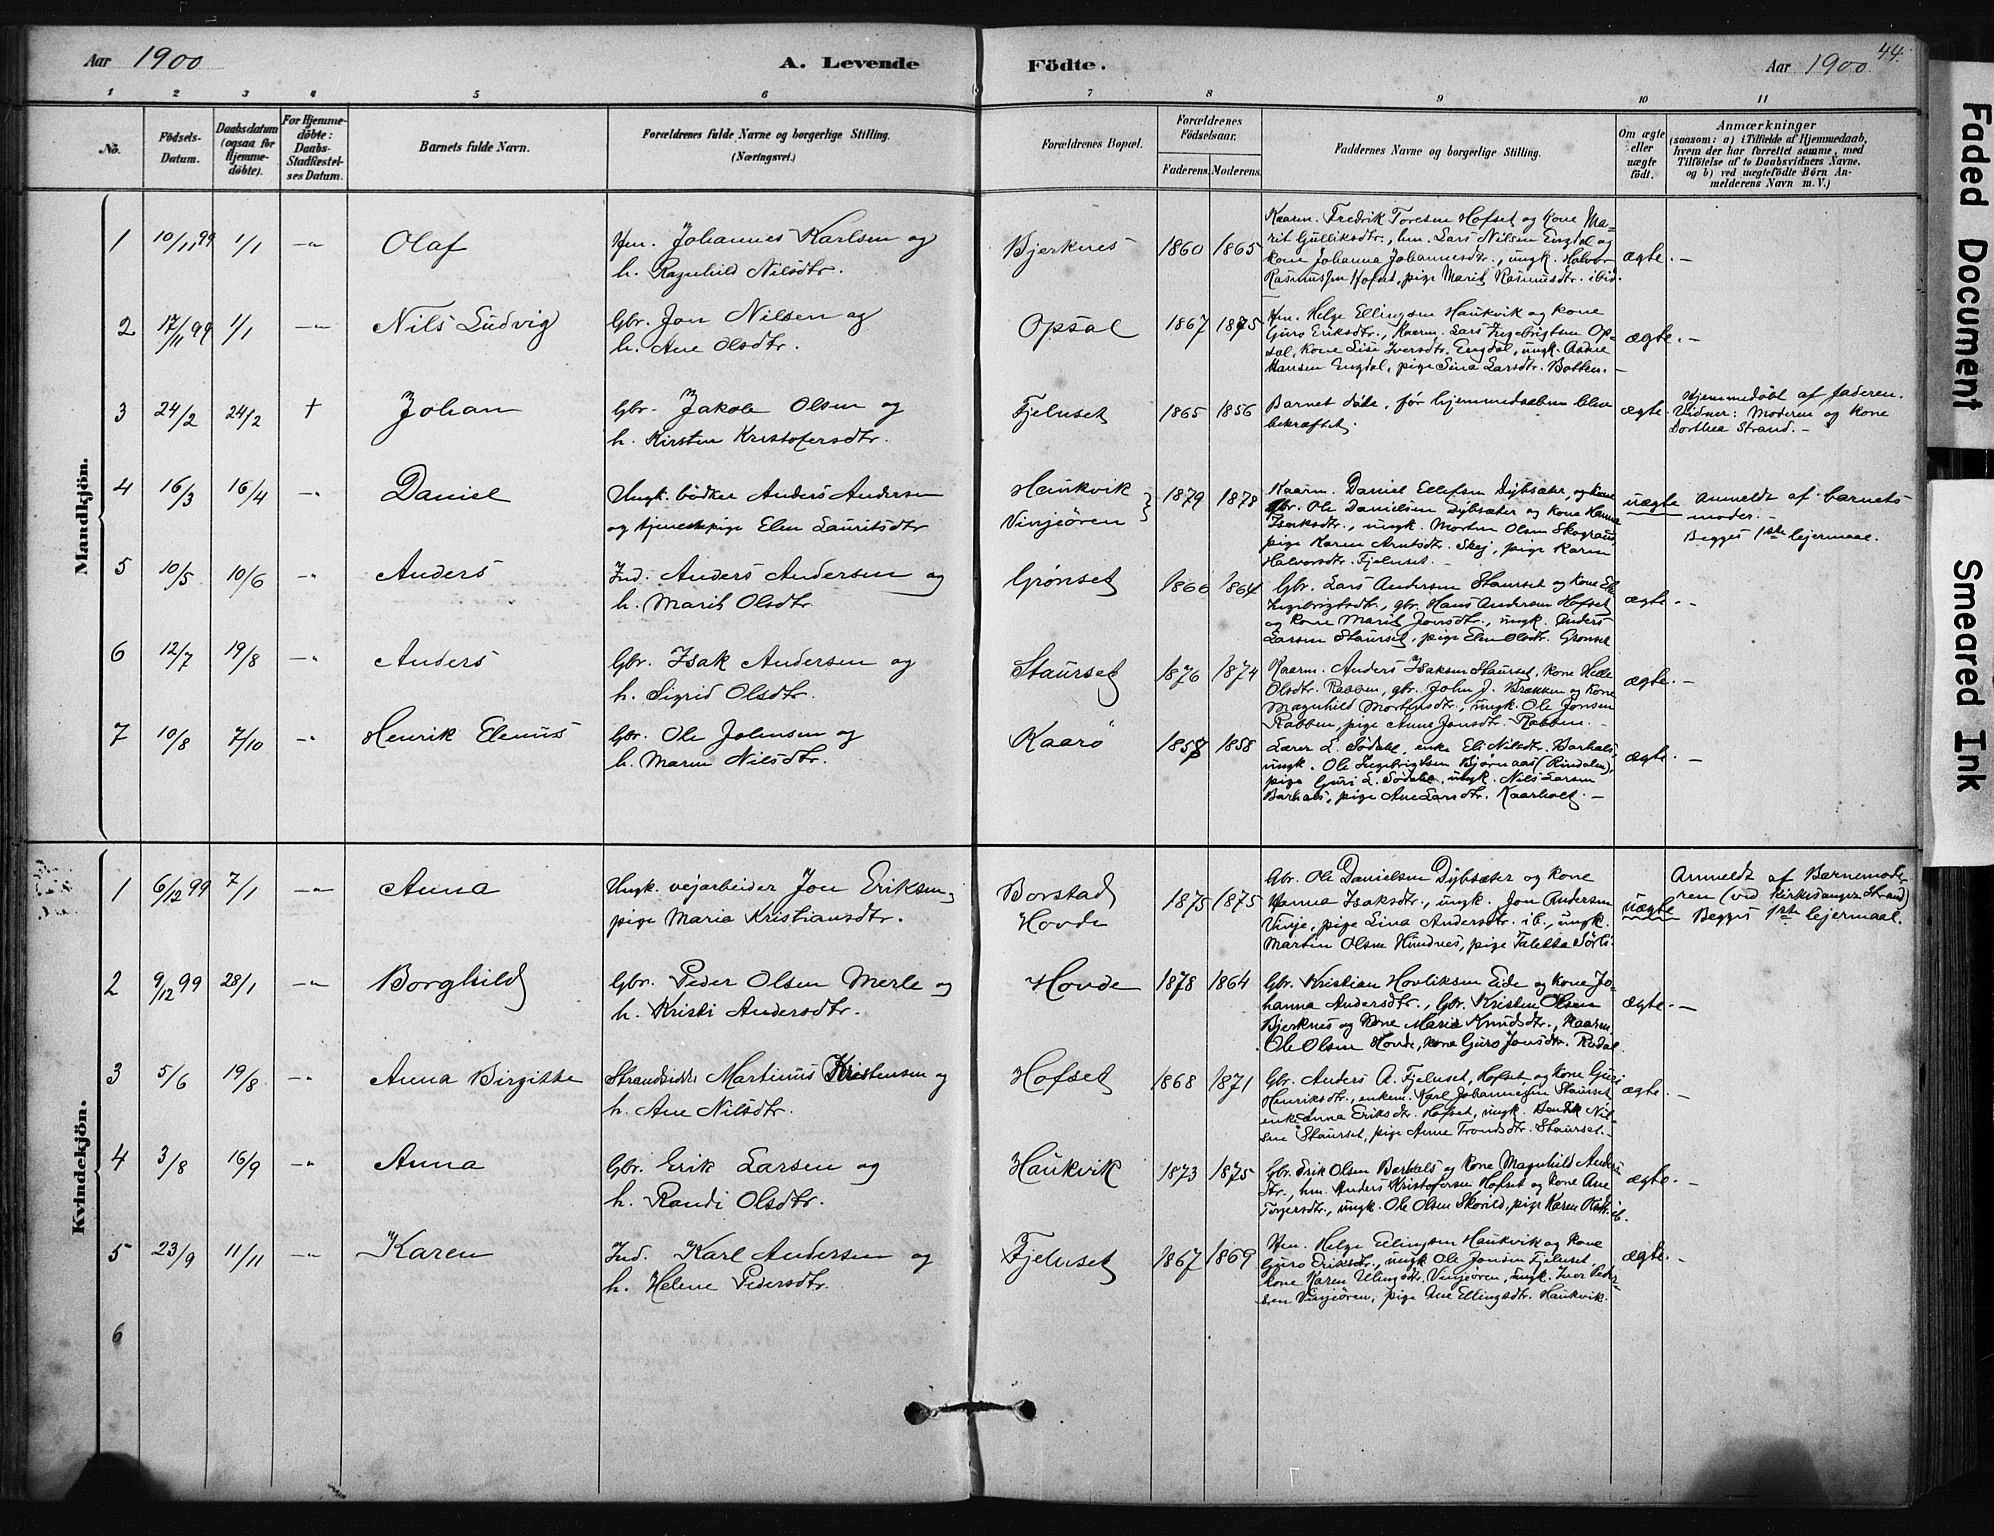 Aar 1900
A. Levende
Födte.
Aar 1900
44.
1 2 3 4 5 6 7 8 9 10 11
No.
Födsels-
Datum.
Daabsdatum
(ogsaa for
Hjemme-
döbte).
For Hjemme-
döbte:
Daabs-
Stadfæstel-
ses Datum.
Barnets fulde Navn.
Forældrenes fulde Navne og borgerlige Stilling.
(Næringsvei.)
Forældrenes Bopæl.
Forældrenes
Födselsaar.
Faderens. Moderens.
Faddernes Navne og borgerlige Stilling.
Om ægte
eller
uægte
født.
Anmærkninger
(saasom: a) i Tilfælde af Hjemmedaab,
hvem der har forrettet samme, med
Tilföielse af to Daabsvidners Navne.
og b) ved uægtefödte Børn An-
melderens Navn m. V.)
Mandkjön.
1 10/11 99 1/1 -"- Olaf
Hm. Johannes Karlsen og
h. Ragnhild Nilsdtr.
Bjerknes 1860 1865
Kaarm. Fredrik Toresen Hofset og kone Ma-
rit Gulliksdtr., hm. Lars Nilsen Engdal og
kone Johanna Johannesdtr., ungk. Halvor
Rasmussen Hofset, pige Marit Rasmusdtr. ibid.
ægte. -
2 17/11 99 1/1 -"- Nils Ludvig
Gbr. Jon Nilsen og
h. Ane Olsdtr.
Opsal 1867 1875
Hm. Helge Ellingsen Haukvik og kone
Guro Eriksdtr., Kaarm. Lars Ingebrigtsen Op-
sal, kone Lise Iversdtr. Engdal, ungk.
Hansen Engdal, pige Sina Larsdtr. Botten. -
ægte. -
3 24/2 24/2 + Johan
Gbr. Jakob Olsen og
h. Kirsten Kristofersdtr.
Fjelnset 1865 1856
Barnet døde, før hjemmedaaben blev
bekræftet.
ægte.
Hjemmedøbt af faderen.
Vidner: Moderen og kone
Dorthea Strand. -
4 16/3 16/4 -"- Daniel
Ungk. bödker Anders Andersen
og tjenestepige Elen Lauritsdtr
Haukvik
Vinjeören } 1879 1878
Kaarm. Daniel Ellefsen Dybsæter, og kone
Gbr. Ole Danielsen Dybsæter og kone Hanna
Isaksdtr., ungk. Morten Olsen
pige Karen Arntsdtr. Skej, pige Karen
Halvorsdtr. Fjelnset. -
uægte
Anmeldt af barnets
moder. -
Begges 1ste lejermaal.
5 10/5 10/6 -"- Anders
Ind. Anders Andersen og
h. Marit Olsdtr.
Grönset 1866 1864
Gbr. Lars Andersen Staurset og kone Eli
Ingebrigtsdtr., gbr. Hans Andersen Hofset
og kone Marit Jonsdtr., ungk. Anders
Larsen Staurset, pige Elen Olsdtr. Grönset
ægte. -
6 12/7 19/8 -"- Anders
Gbr. Isak Andersen og
h. Sigrid Olsdtr.
Staurset 1876 1874
Kaarm. Anders Isaksen Staurset, kone
Olsdtr. Rabben, gbr. John J. Brækken og kone
Magnhild Mortensdtr., ungk. Ole Jonsen
Rabben, pige Anne Jonsdtr. Rabben. -
ægte. -
7 10/8 7/10 -"- Henrik Elenus
Gbr. Ole Johnsen og
h. Maren Nilsdtr.
Kaarö 1858 1858
Lærer L. Södahl, enke Eli Nilsdtr. Barhals,
ungk. Ole Ingebrigtsen Bjørnaas (Rindalen),
pige Guri L. Södahl, ungk. Nils Larsen
Barhals, pige Ane Larsdtr. Kaarholt. -
ægte. -
Kvindekjön.
1 6/12 99 7/1 -"- Anna
Ungk. vejarbeider Jon Eriksen,
pige Maria Kristiansdtr.
Borstad
Hovde 1875 1875
Gbr. Ole Danielsen Dybsæter og kone
Hanna Isaksdtr., ungk. Jon Andersen
Vinje, pige Lina Andersdtr. ib., ungk.
Martin Olsen Hindnes, pige
uægte
Anmeldt af Barnemode-
ren (ved Kirkesanger Strand)
Begges 1ste lejermaal.
2 9/12 99 28/1 -"- Borghild
Gbr. Peder Olsen Merle og
h. Kristi Andersdtr.
Hovde 1878 1864
Gbr. Kristian Eide og kone Jo-
hanna Andersdtr., Gbr. Kristen Olsen
Bjerknes og kone Maria Knudsdtr., Kaarm.
Ole Olsen Hovde, kone Guro Jonsdtr.
ægte. -
3 5/6 19/8 -"- Anna Birgitte
Strandsidder Martinus Kristensen og
h. Ane Nilsdtr.
Hofset 1868 1871
Gbr. Anders A. Fjelnset, Hofset, og kone Guri
Henriksdtr., enkem. Karl Johannesen Staurset
enke Anna Eriksdtr. Hofset, ungk. Nil-
sen Staurset, pige Anne Trondsdtr. Staurset. -
ægte. -
4 3/8 16/9 -"- Anna
Gbr. Erik Larsen og
h. Randi Olsdtr.
Haukvik 1873 1875
Gbr. Erik Olsen Barhals og kone Magnhild Anders-
dtr., hm. Anders Kristofersen Hofset og kone Ane
Torgersdtr., ungk. Ole Olsen pige Karen ib.
ægte. -
5 23/9 11/11 -"- Karen
Ind. Karl Andersen og
h. Helene Pedersdtr.
Fjelnset 1867 1869
Hm. Helge Ellingsen Haukvik og kone
Guro Eriksdtr., ungk. Ole Jonsen Fjelnset,
kone Karen Vinjeören, ungk. Iver Peder-
sen Vinjeören, pige Ane Ellingsdtr. Haukvik.
ægte. -
6
Faded Document
Smeared Ink